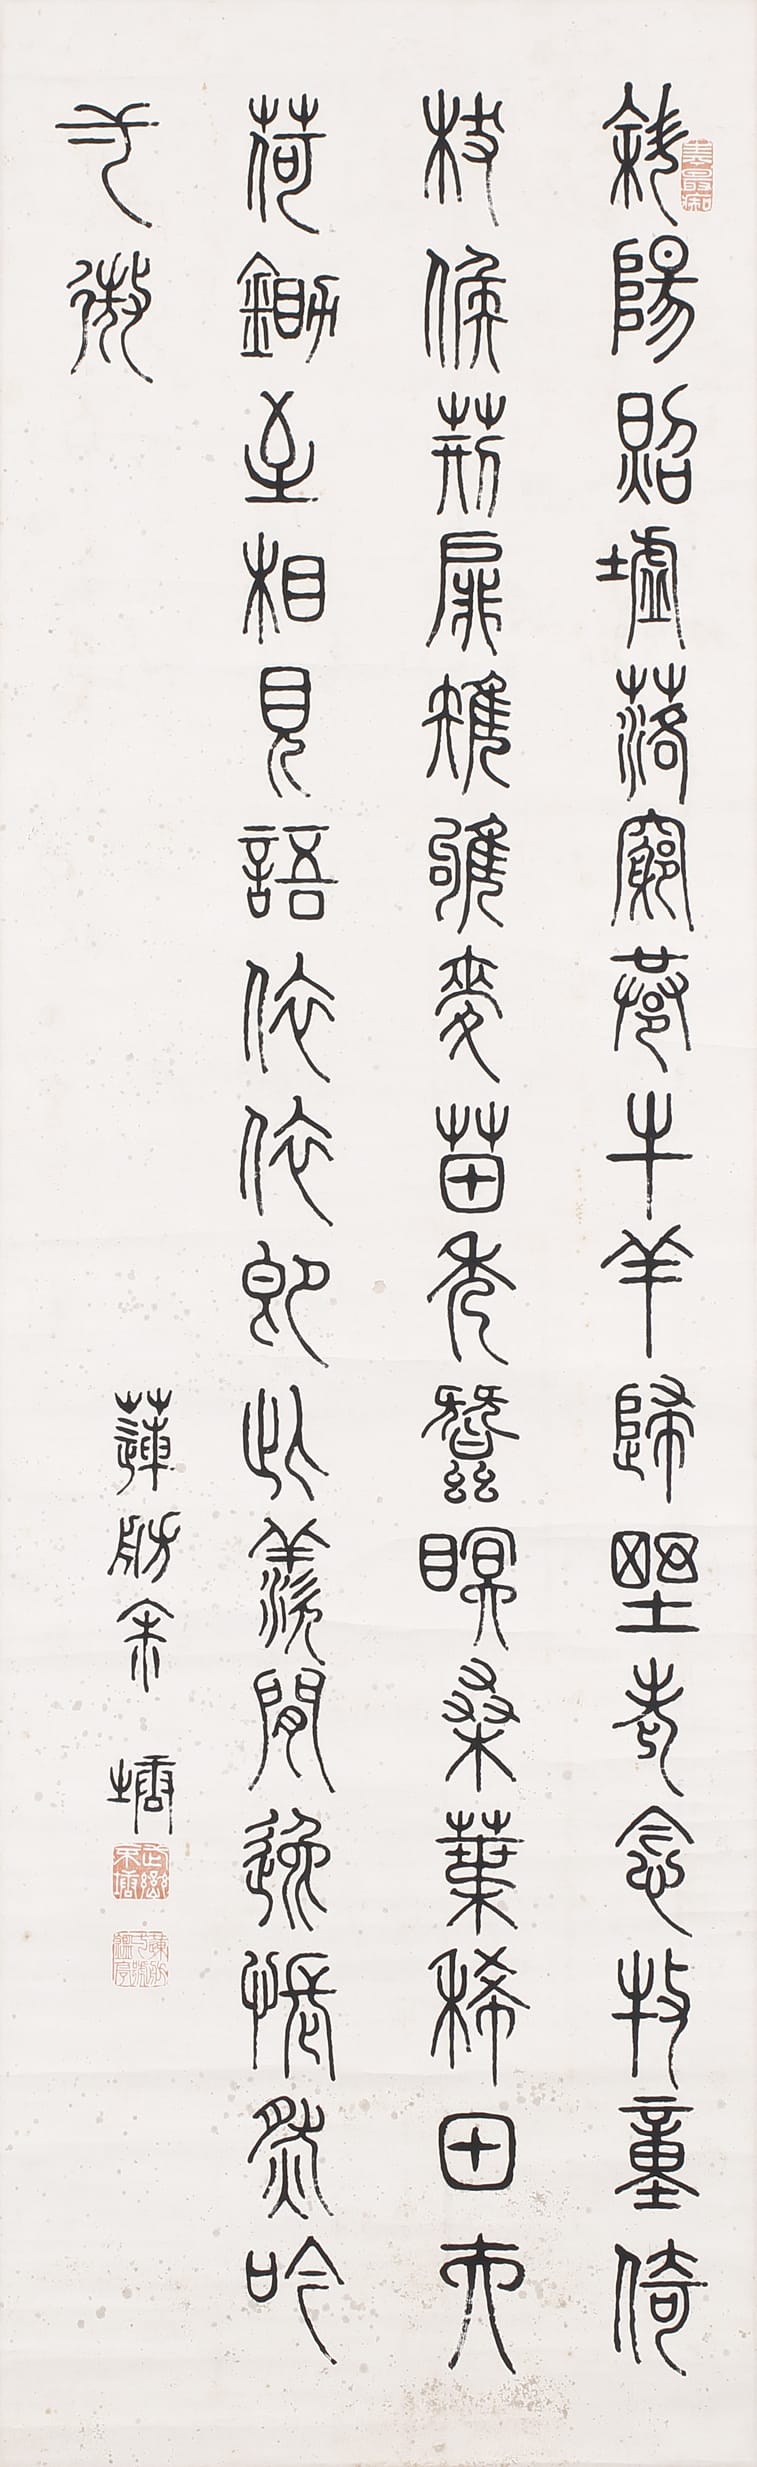 斜陽照墟落窮巷牛羊歸野老念牧童倚
杖候荊扉雉雊麥苗秀蠶瞑桑葉稀田夫
荷鋤至相見語依依即此羨閒逸悵然吟
式微
蓮舫余